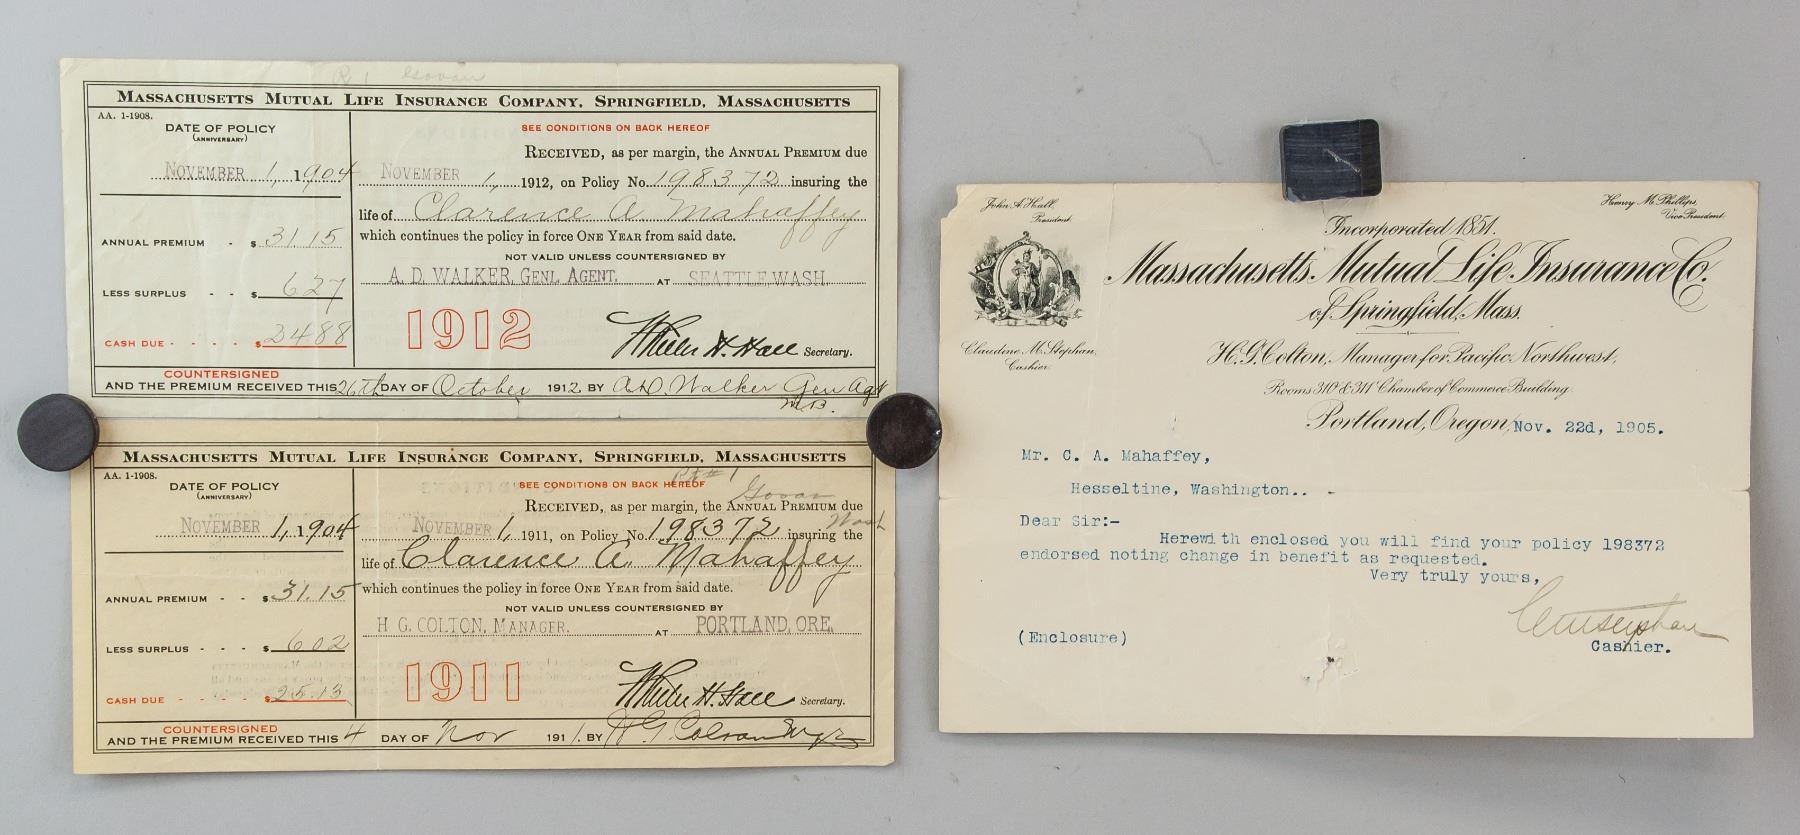 R 1 Govan
MASSACHUSETTS MUTUAL LIFE INSURANCE COMPANY, SPRINGFIELD, MASSACHUSETTS
AA. 1-1908.
DATE OF POLICY
(ANNIVERSARY)
NOVEMBER 1, 1904
ANNUAL PREMIUM - $ 31.15
LESS SURPLUS - - $ 6.27
CASH DUE - - - - $ 24.88
SEE CONDITIONS ON BACK HEREOF
RECEIVED, as per margin, the ANNUAL PREMIUM due
NOVEMBER 1, 1912, on Policy No. 198372 insuring the
life of Clarence A Mahaffey
which continues the policy in force ONE YEAR from said date.
NOT VALID UNLESS COUNTERSIGNED BY
A. D. WALKER, GENL. AGENT. AT SEATTLE, WASH.
1912
Wheeler H. Hall Secretary.
COUNTERSIGNED
AND THE PREMIUM RECEIVED THIS 26th DAY OF October 1912 BY A.D. Walker Gen Agt
M.B.
MASSACHUSETTS MUTUAL LIFE INSURANCE COMPANY, SPRINGFIELD, MASSACHUSETTS
AA. 1-1908.
DATE OF POLICY
(ANNIVERSARY)
NOVEMBER 1, 1904
ANNUAL PREMIUM - - $ 31.15
LESS SURPLUS - - - $ 6.02
CASH DUE - - - - $ 25.13
Rt # 1
SEE CONDITIONS ON BACK HEREOF
Govan
RECEIVED, as per margin, the ANNUAL PREMIUM due
Wash
NOVEMBER 1, 1911, on Policy No. 198372 insuring the
life of Clarence A. Mahaffey
which continues the policy in force ONE YEAR from said date.
NOT VALID UNLESS COUNTERSIGNED BY
H G. COLTON, MANAGER. AT PORTLAND, ORE.
1911
Wheeler H. Hall Secretary.
COUNTERSIGNED
AND THE PREMIUM RECEIVED THIS 4 DAY OF Nov 1911. BY H G Colton Mgr
John A. Hall,
President.
Henry M. Phillips,
Vice President.
Incorporated 1851.
Massachusetts Mutual Life Insurance Co.
of Springfield, Mass.
Claudine M. Stephan,
Cashier.
H. G. Colton, Manager for Pacific Northwest,
Rooms 310 & 311 Chamber of Commerce Building.
Portland, Oregon, Nov. 22d, 1905.
Mr. C. A. Mahaffey,
Hesseltine, Washington..
Dear Sir:-
Herewith enclosed you will find your policy 198372
endorsed noting change in benefit as requested.
Very truly yours,
CMStephan
(Enclosure)
Cashier.